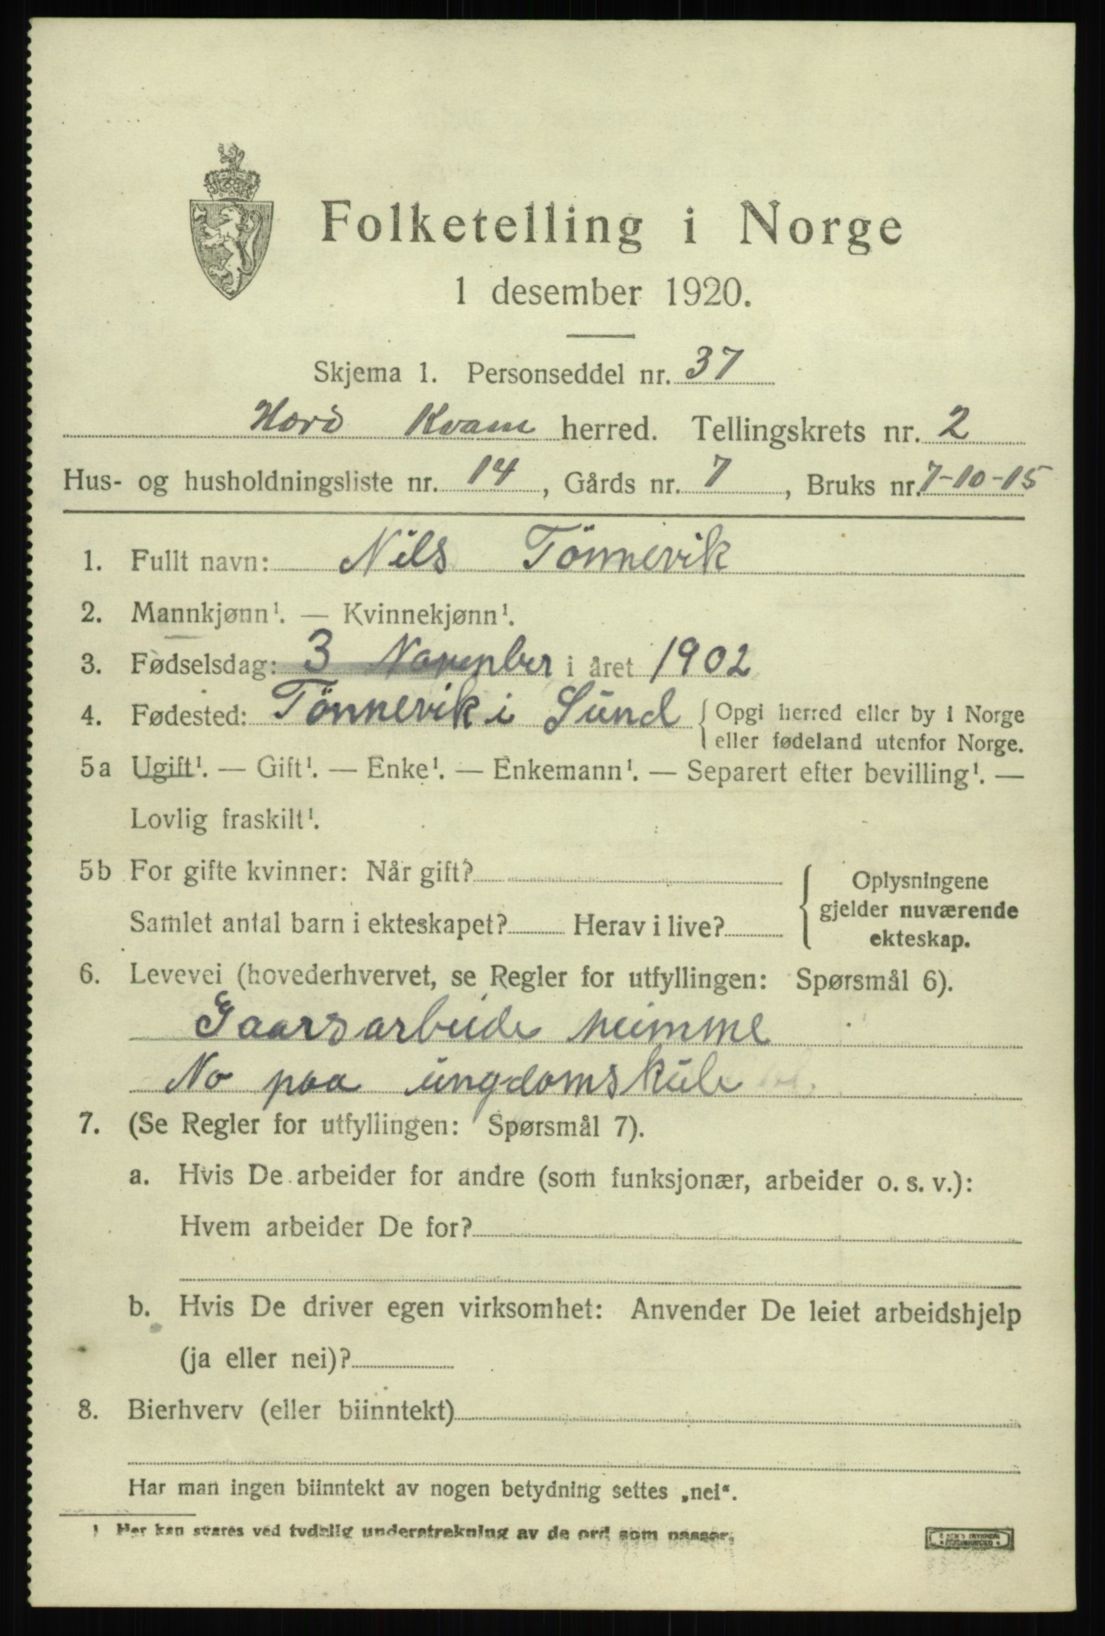 Folketelling i Norge
1 desember 1920.
Skjema 1. Personseddel nr. 37
Hord Kvam herred. Tellingskrets nr. 2
Hus- og husholdningsliste nr. 14, Gårds nr. 7, Bruks nr. 7-10-15
1. Fullt navn: Nils Tönnevik
2. Mannkjønn¹. — Kvinnekjønn¹.
3. Fødselsdag: 3 November i året 1902
4. Fødested: Tönnevik i Sund { Opgi herred eller by i Norge
eller fødeland utenfor Norge.
5a Ugift¹. — Gift¹. — Enke¹. — Enkemann¹. — Separert efter bevilling¹. —
Lovlig fraskilt¹.
5b For gifte kvinner: Når gift?
Samlet antal barn i ekteskapet? Herav i live?
Oplysningene
gjelder nuværende
ekteskap.
6. Levevei (hovederhvervet, se Regler for utfyllingen: Spørsmål 6).
Gaarsarbeide heimme
No paa ungdomskule
7. (Se Regler for utfyllingen: Spørsmål 7).
a. Hvis De arbeider for andre (som funksjonær, arbeider o. s. v.):
Hvem arbeider De for?
b. Hvis De driver egen virksomhet: Anvender De leiet arbeidshjelp
(ja eller nei)?
8. Bierhverv (eller biinntekt)
Har man ingen biinntekt av nogen betydning settes „nei“.
¹ Her kan svares ved tydelig understrekning av de ord som passer.